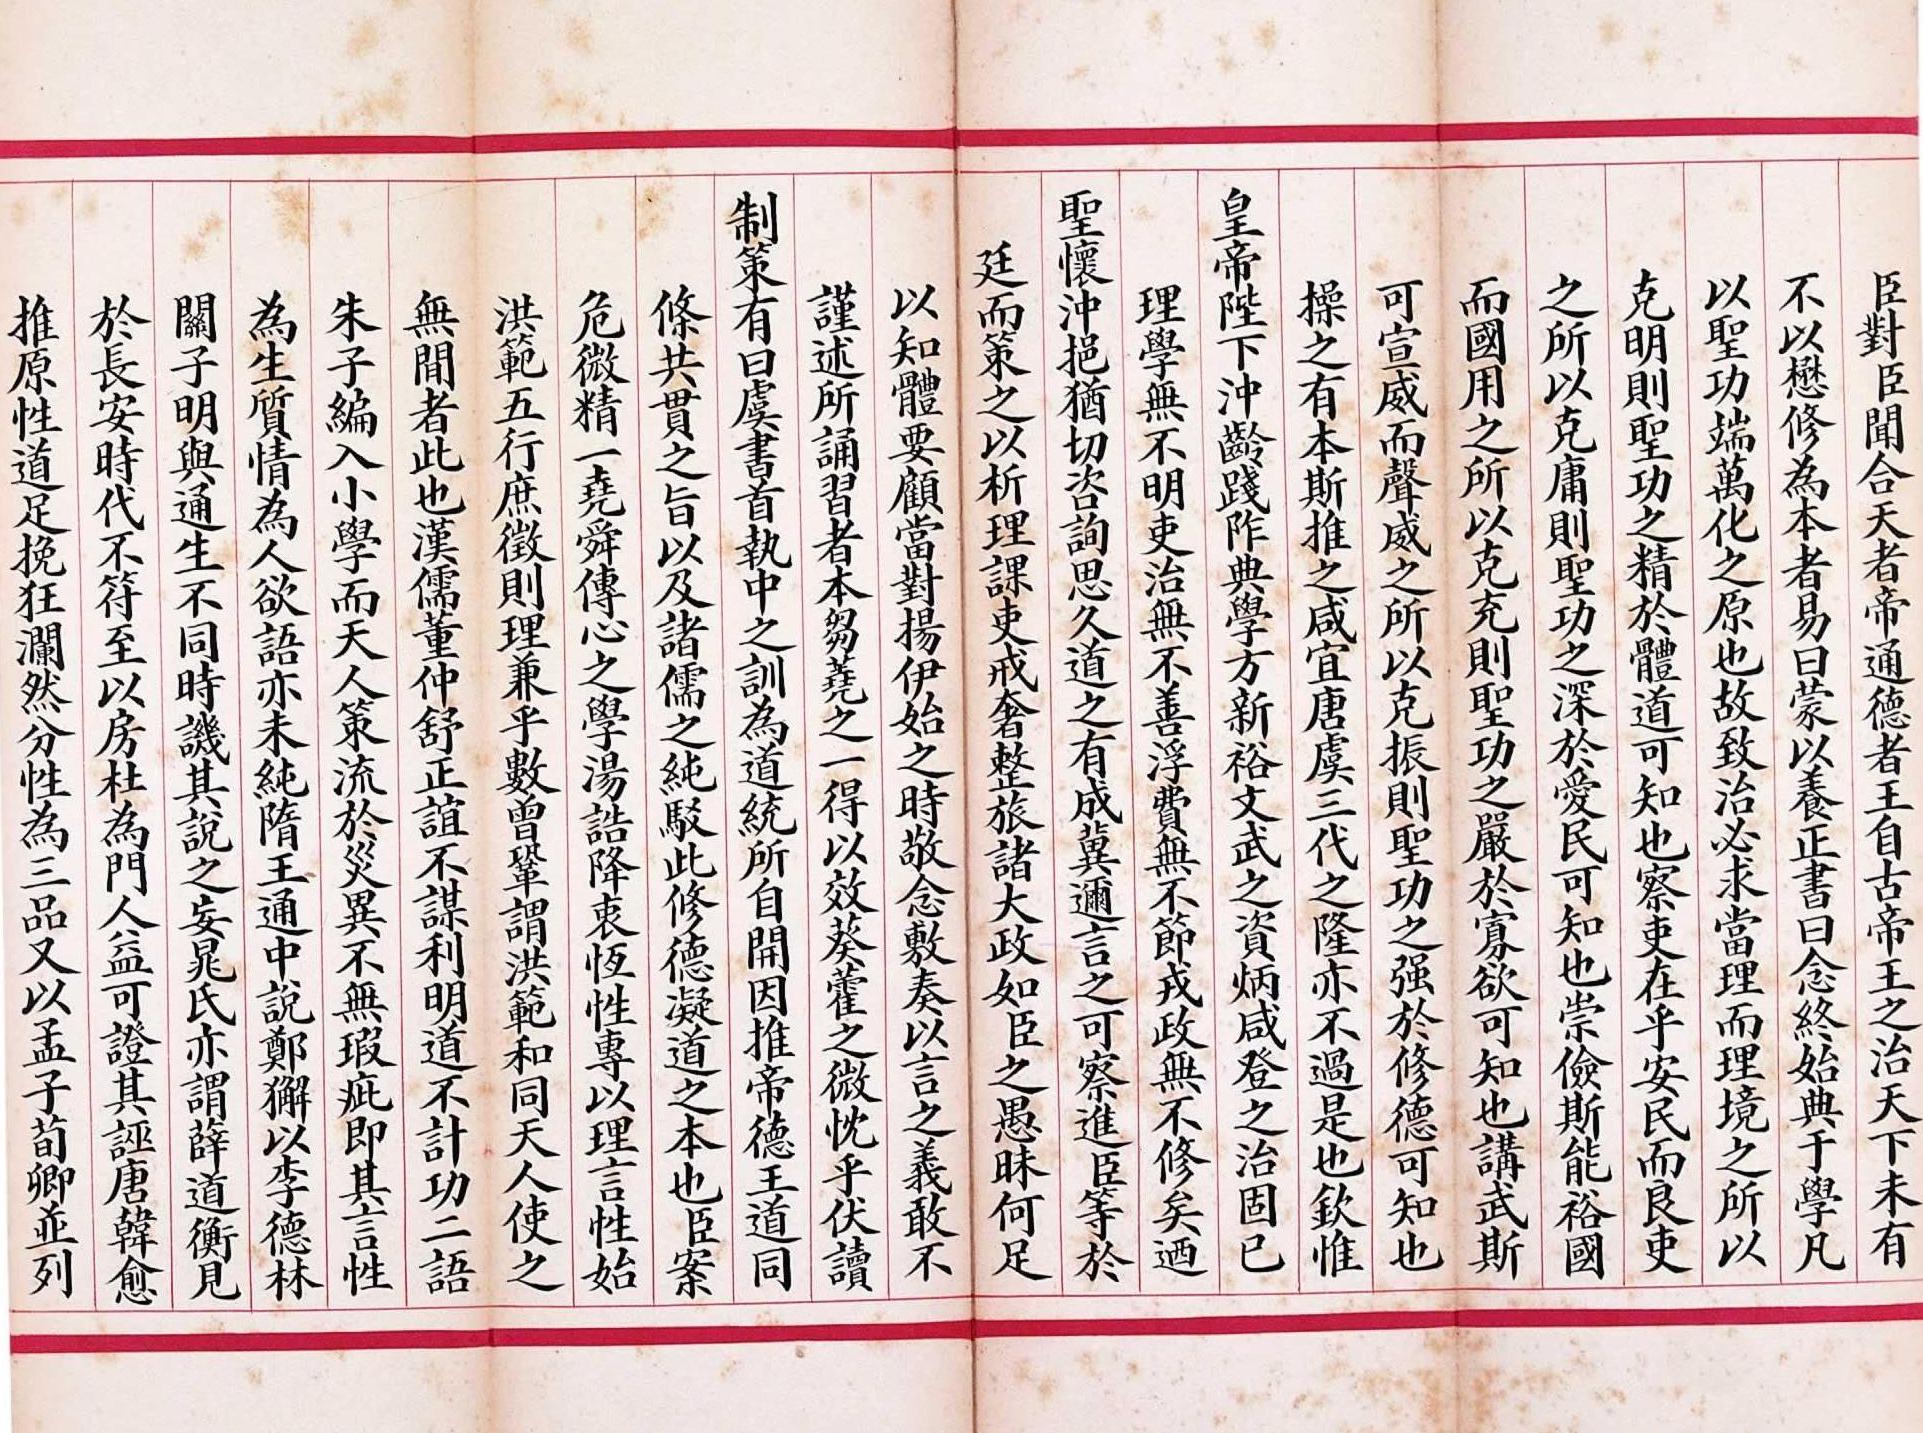 臣對臣聞合天者帝通德者王自古帝王之治天下未有
不以懋修為本者易曰蒙以養正書曰念終始典于學凡
以聖功端萬化之原也故致治必求當理而理境之所以
克明則聖功之精於體道可知也察吏在乎安民而良吏
之所以克庸則聖功之深於愛民可知也崇儉斯能裕國
而國用之所以克充則聖功之嚴於寡欲可知也講武斯
可宣威而聲威之所以克振則聖功之强於修德可知也
操之有本斯推之咸宜唐虞三代之隆亦不過是也欽惟
皇帝陛下沖齡踐阼典學方新裕文武之資炳咸登之治固已
理學無不明吏治無不善浮費無不節戎政無不修矣迺
聖懷沖挹猶切咨詢思久道之有成冀邇言之可察進臣等於
廷而策之以析理課吏戒奢整旅諸大政如臣之愚昧何足
以知體要顧當對揚伊始之時敬念敷奏以言之義敢不
謹述所誦習者本芻蕘之一得以效葵藿之微忱乎伏讀
制策有曰虞書首執中之訓為道統所自開因推帝德王道同
條共貫之旨以及諸儒之純駁此修德凝道之本也臣案
危微精一堯舜傳心之學湯誥降衷恆性專以理言性始
洪範五行庶徵則理兼乎數曾鞏謂洪範和同天人使之
無間者此也漢儒董仲舒正誼不謀利明道不計功二語
朱子編入小學而天人策流於災異不無瑕疵即其言性
為生質情為人欲語亦未純隋王通中說鄭獬以李德林
關子明與通生不同時譏其說之妄晁氏亦謂薛道衡見
於長安時代不符至以房杜為門人益可證其誣唐韓愈
推原性道足挽狂瀾然分性為三品又以孟子荀卿並列